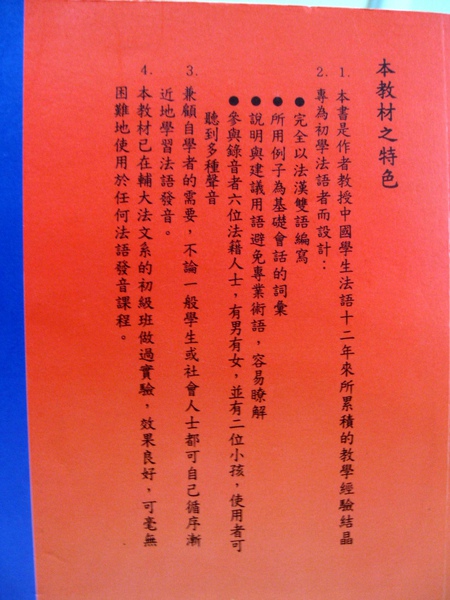 本教材之特色
1. 本書是作者教授中國學生法語十二年來所累積的教學經驗結晶
2. 專為初學法語者而設計：
●完全以法漢雙語編寫
●所用例子為基礎會話的詞彙
●說明與建議用語避免專業術語，容易瞭解
●參與錄音者六位法籍人士，有男有女，並有二位小孩，使用者可
聽到多種聲音
3. 兼顧自學者的需要，不論一般學生或社會人士都可自己循序漸
近地學習法語發音。
4. 本教材已在輔大法文系的初級班做過實驗，效果良好，可毫無
困難地使用於任何法語發音課程。